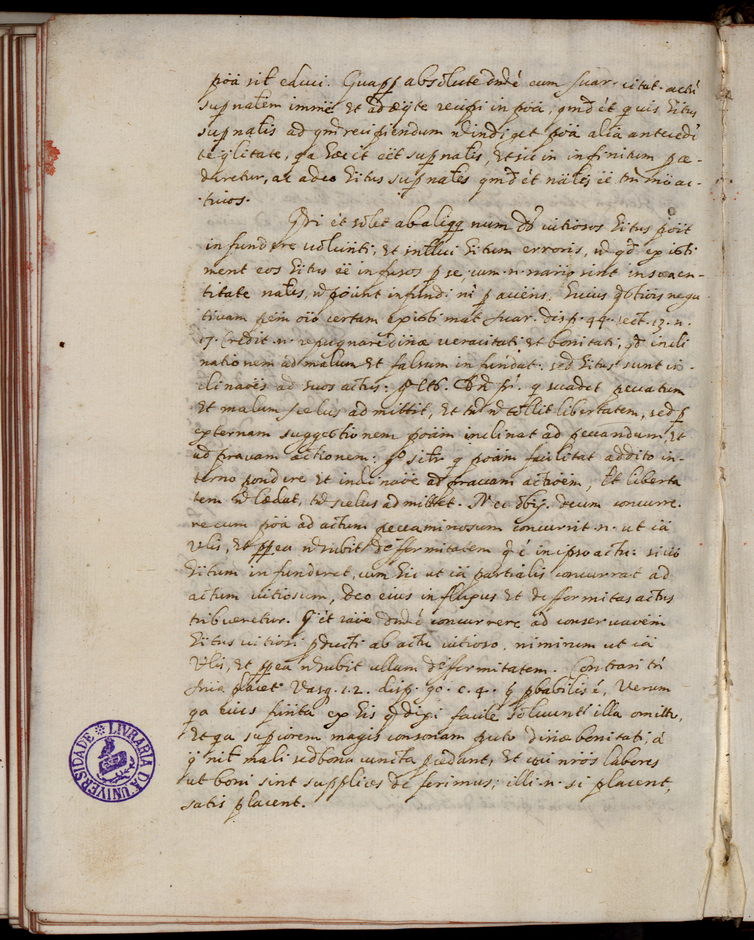 põa sit educi. Quapp absolute dnd é cum Suar. citat. actũ
supnalem immẽ et adæqte recipi in põa, qmd et quis hitus
supnalis ad qm recipiendum ñ indiget põa alia antecedẽ
te qlitate, qa hæc it eẽt supnales, et sic in infinitum pœ-
deretur, ac adeo hitus supnales qmd et nãles eẽ tm mõ ac-
tivos.
Qri et solet ab aliqq num Ds vitiosos hitus põit
infundere volunti, et intllui hitum erroris,
ment eos hitus eẽ infusos p se cum n. nario sint in sua en-
titate nales, ñ põunt infundi ni p accens. Huius qstiois nega
tivam pem oio certam existimat Suar. disp. 44. sect. 13. n.
17. Credit n. repugnare divinæ veracitati et bonitati, qd incli
nationem ad malum et falsum infundat: sed hitus sunt in-
clinaões ad suos actus: Ds pt. q suadet peccatum
et malum scelus admittit, et tñ ñ tollit libertatem, sed p
externam suggestionem põam inclinat ad peccandum, et
ad pravam actionem: go sitr q põam facilitat addito in-
terno pondere et inclinaõe ad pravam actiõem, et liberta
tem ñ lædat, tñ scelus admittet. Nec obijc. deum concurre-
re cum põa ad actum peccaminosum concurrit n. ut cã
vlis, et ppea ñ subit deformitatem q é in ipso actu: si vo
hitum infunderet, cum hic ut cã partialis concurrat ad
actum vitiosum, deo eius influxus et deformitas actus
tribueretur. Q it raõe dnd é concurrere ad conservaõem
hitus vitiosi pducti ab actu vitioso, nimirum ut cã
vlis, et ppea ñ subit ullam deformitatem. Contrari trĩ
snia placet Vasq. 1. 2. disp. 90. c. 4. q pbabilis é, Verum
qa eius funta ex his q dixi facile solvunt illa omitto,
et qa supiorem magis consonam puto divinæ bonitati, a
q nil mali sed bona cuncta pcedunt, et cui nrõs labores
ut boni sint supplices deferimus; illi n. si placent,
satis placent.
LIVRARIA DA UNIVERSIDADE